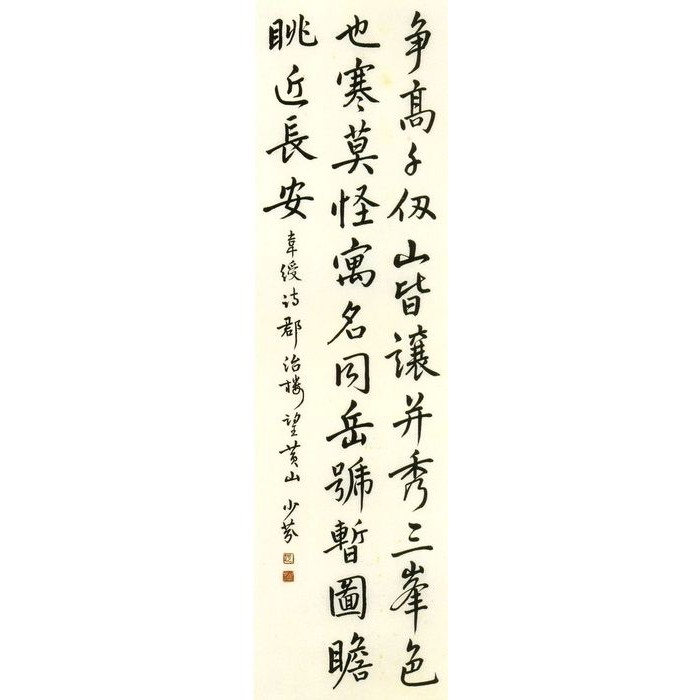 争高千仭山皆讓并秀三峯色
也寒莫怪寓名同岳號暫圖瞻
眺近長安
韋綬诗郡治楼望黄山 少芬